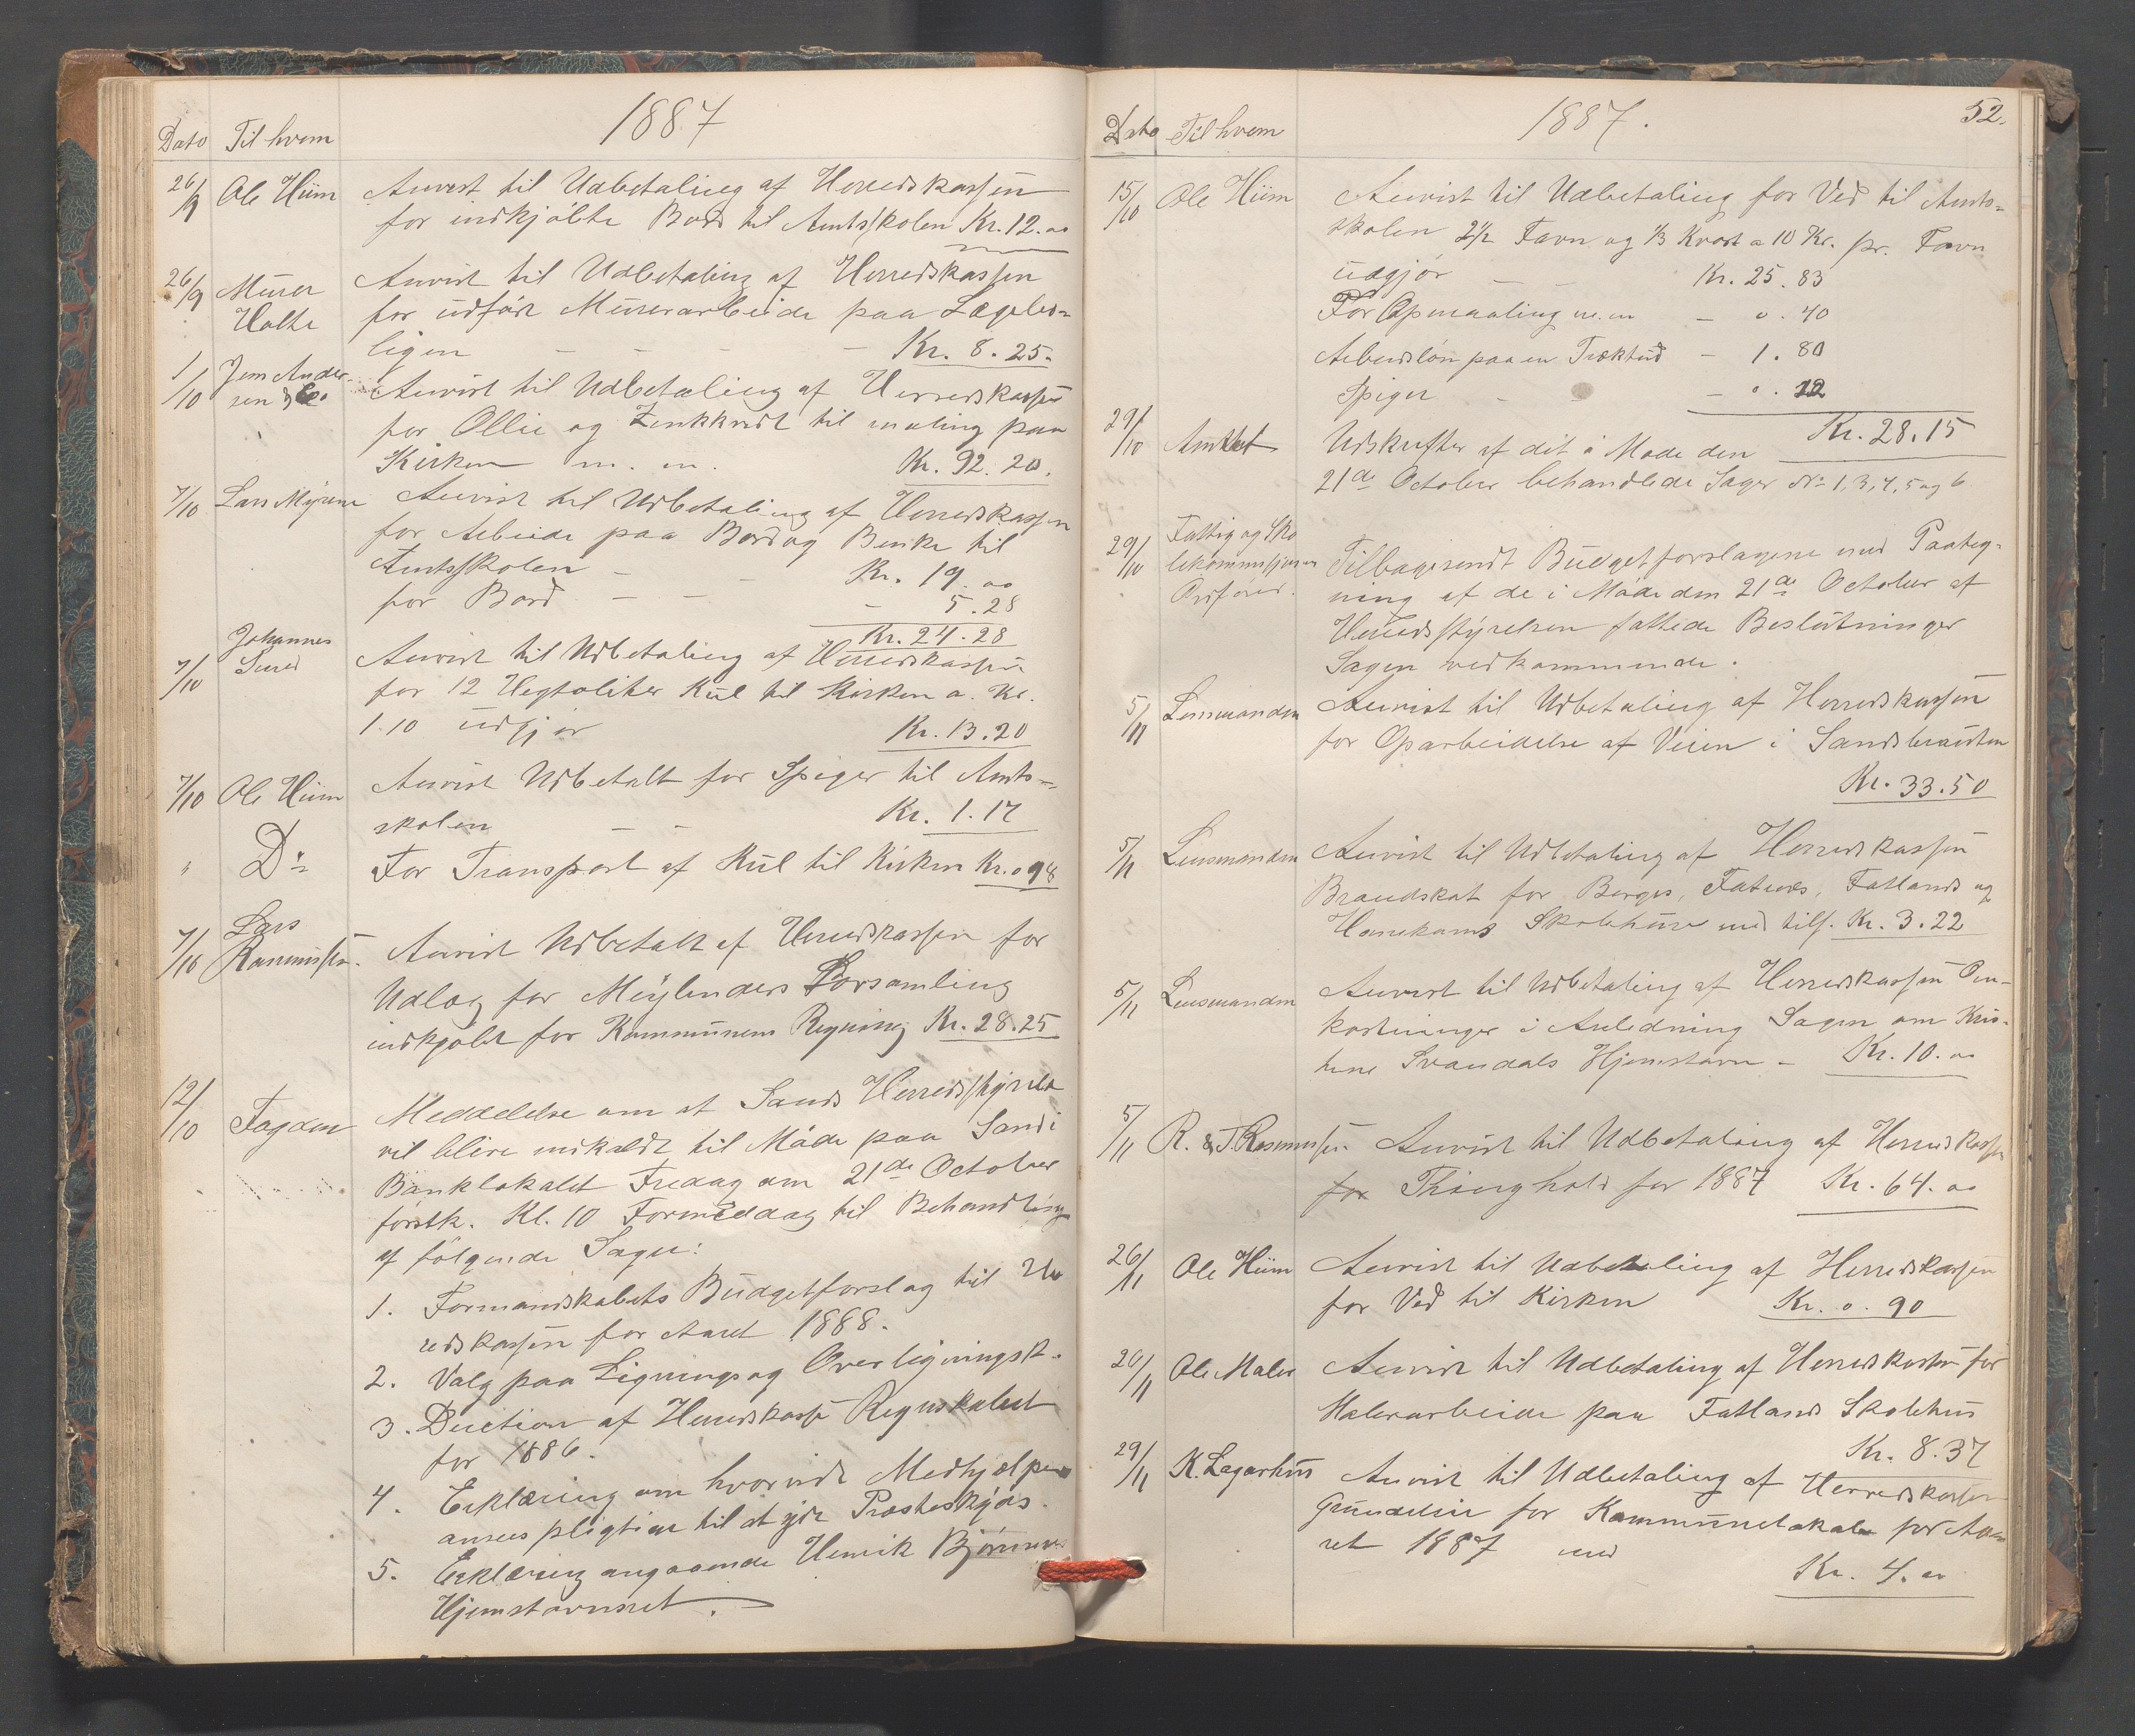 1887
Dato Til hvem
26/9 Ole Hiim Anvist til Udbetaling af Herredskassen
for indkjøbte Bord til Amtsskolen Kr. 12.00
26/9 Murer Holte Anvist til Udbetaling af Herredskassen
for udført Murerarbeide paa Lægebo-
ligen - - - Kr. 8.25.
1/10 Jens Ander-
sen & Co Anvist til Udbetaling af Herredskassen
for Ollie og Zinkhvidt til maling paa
Kirken m. m. Kr. 92.20.
7/10 Lars Myrene Anvist til Udbetaling af Herredskassen
for Arbeide paa Bord og Benke til
Amtsskolen - - Kr. 19.00
for Bord - - - 5.28
Kr. 24.28
7/10 Johannes
Anvist til Udbetaling af Herredskassen
for 12 Hegtoliter Kul til Kirken a. Kr.
1.10 udgjør Kr. 13.20
7/10 Ole Hiim Anvist Udbetalt for Spiger til Amts-
skolen - - Kr. 1.17
" Do For Transport af Kul til Kirken Kr. 0 98
7/10 Lars
Rasmussen. Anvist Udbetalt af Herredskassen for
Udlæg for Meylenders Forsamling
indkjøbt for Kommunens Regning Kr. 28.25
12/10 Fogden Meddelelse om at Sands Herredsstyrelse
vil blive indkaldt til Møde paa Sand i
Banklokalet Fredag den 21de October
førstk. Kl. 10 Formiddag til Behandling
af følgende Sager:
1. Formandskabets Budgetforslag til Her
redskassen for Aaret 1888.
2. Valg paa Ligning og Overligningsk.
3. Decition af Herredskasse Regnskabet
for 1886.
4. Erklæring om hvorvidt Medhjælperen
ansees pligtige til at yde Præsteskyds.
5. Erklæring angaaende Henrik
Hjemstavnsret. -
1887. 52.
Dato Til hvem
15/10 Ole Hiim Anvist til Udbetaling for Ved til Amts-
skolen 2 1/2 Favn og 1/3 Kvart a 10 Kr. pr. Favn
udgjør - - Kr. 25.83
For Opmaaling m.m - 0.40
Arbeidsløn paa en Træktud - 1.80
Spiger - - - 0.12
Kr. 28.15
29/10 Amtet Udskrifter af dit i Møde den
21de October behandlede Sager No 1, 3, 4, 5 og 6
29/10 Fattig og Sko
lekommissjonen
Ordfører. Tilbagesendt Budgetforslagene med Paateg-
ning af de i Møde den 21de October af
Herredsstyrelsen fattede Beslutninger
Sagen vedkommende.
5/11 Lensmanden Anvist til Udbetaling af Herredskassen
for Oparbeidelse af Veien i
Kr. 33.50
5/11 Lensmanden Anvist til Udbetaling af Herredskassen
Brandskat for Berges, Fatnes, Fatlands og
Hanekams Skolehuse med tils. Kr. 3.22
5/11 Lensmanden Anvist til Udbetaling af Herredskassen Om-
kostninger i Anledning Sagen om Kris-
tene Svandals Hjemstavn - Kr. 10.00
5/11 R. & T. Rasmussen. Anvist til Udbetaling af Herredskassen
for Thinghold for 1887 Kr. 64.00
26/11 Ole Hiim Anvist til Udbetaling af Herredskassen
for Ved til Kirken Kr. 0.90
26/11 Ole Maler Anvist til Udbetaling af Herredskassen for
Malerarbeide paa Fatlands Skolehus
Kr. 8.37
29/11 K. Lagarhus Anvist til Udbetaling af Herredskassen
Grundleie for Kommunelokale for Aa
ret 1887 med
Kr. 4.00